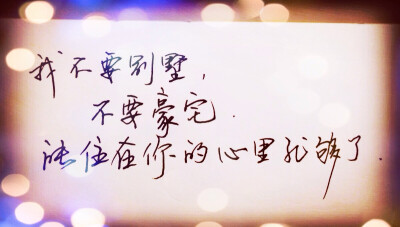 我不要别墅，
不要豪宅.
能住在你的心里就够了.